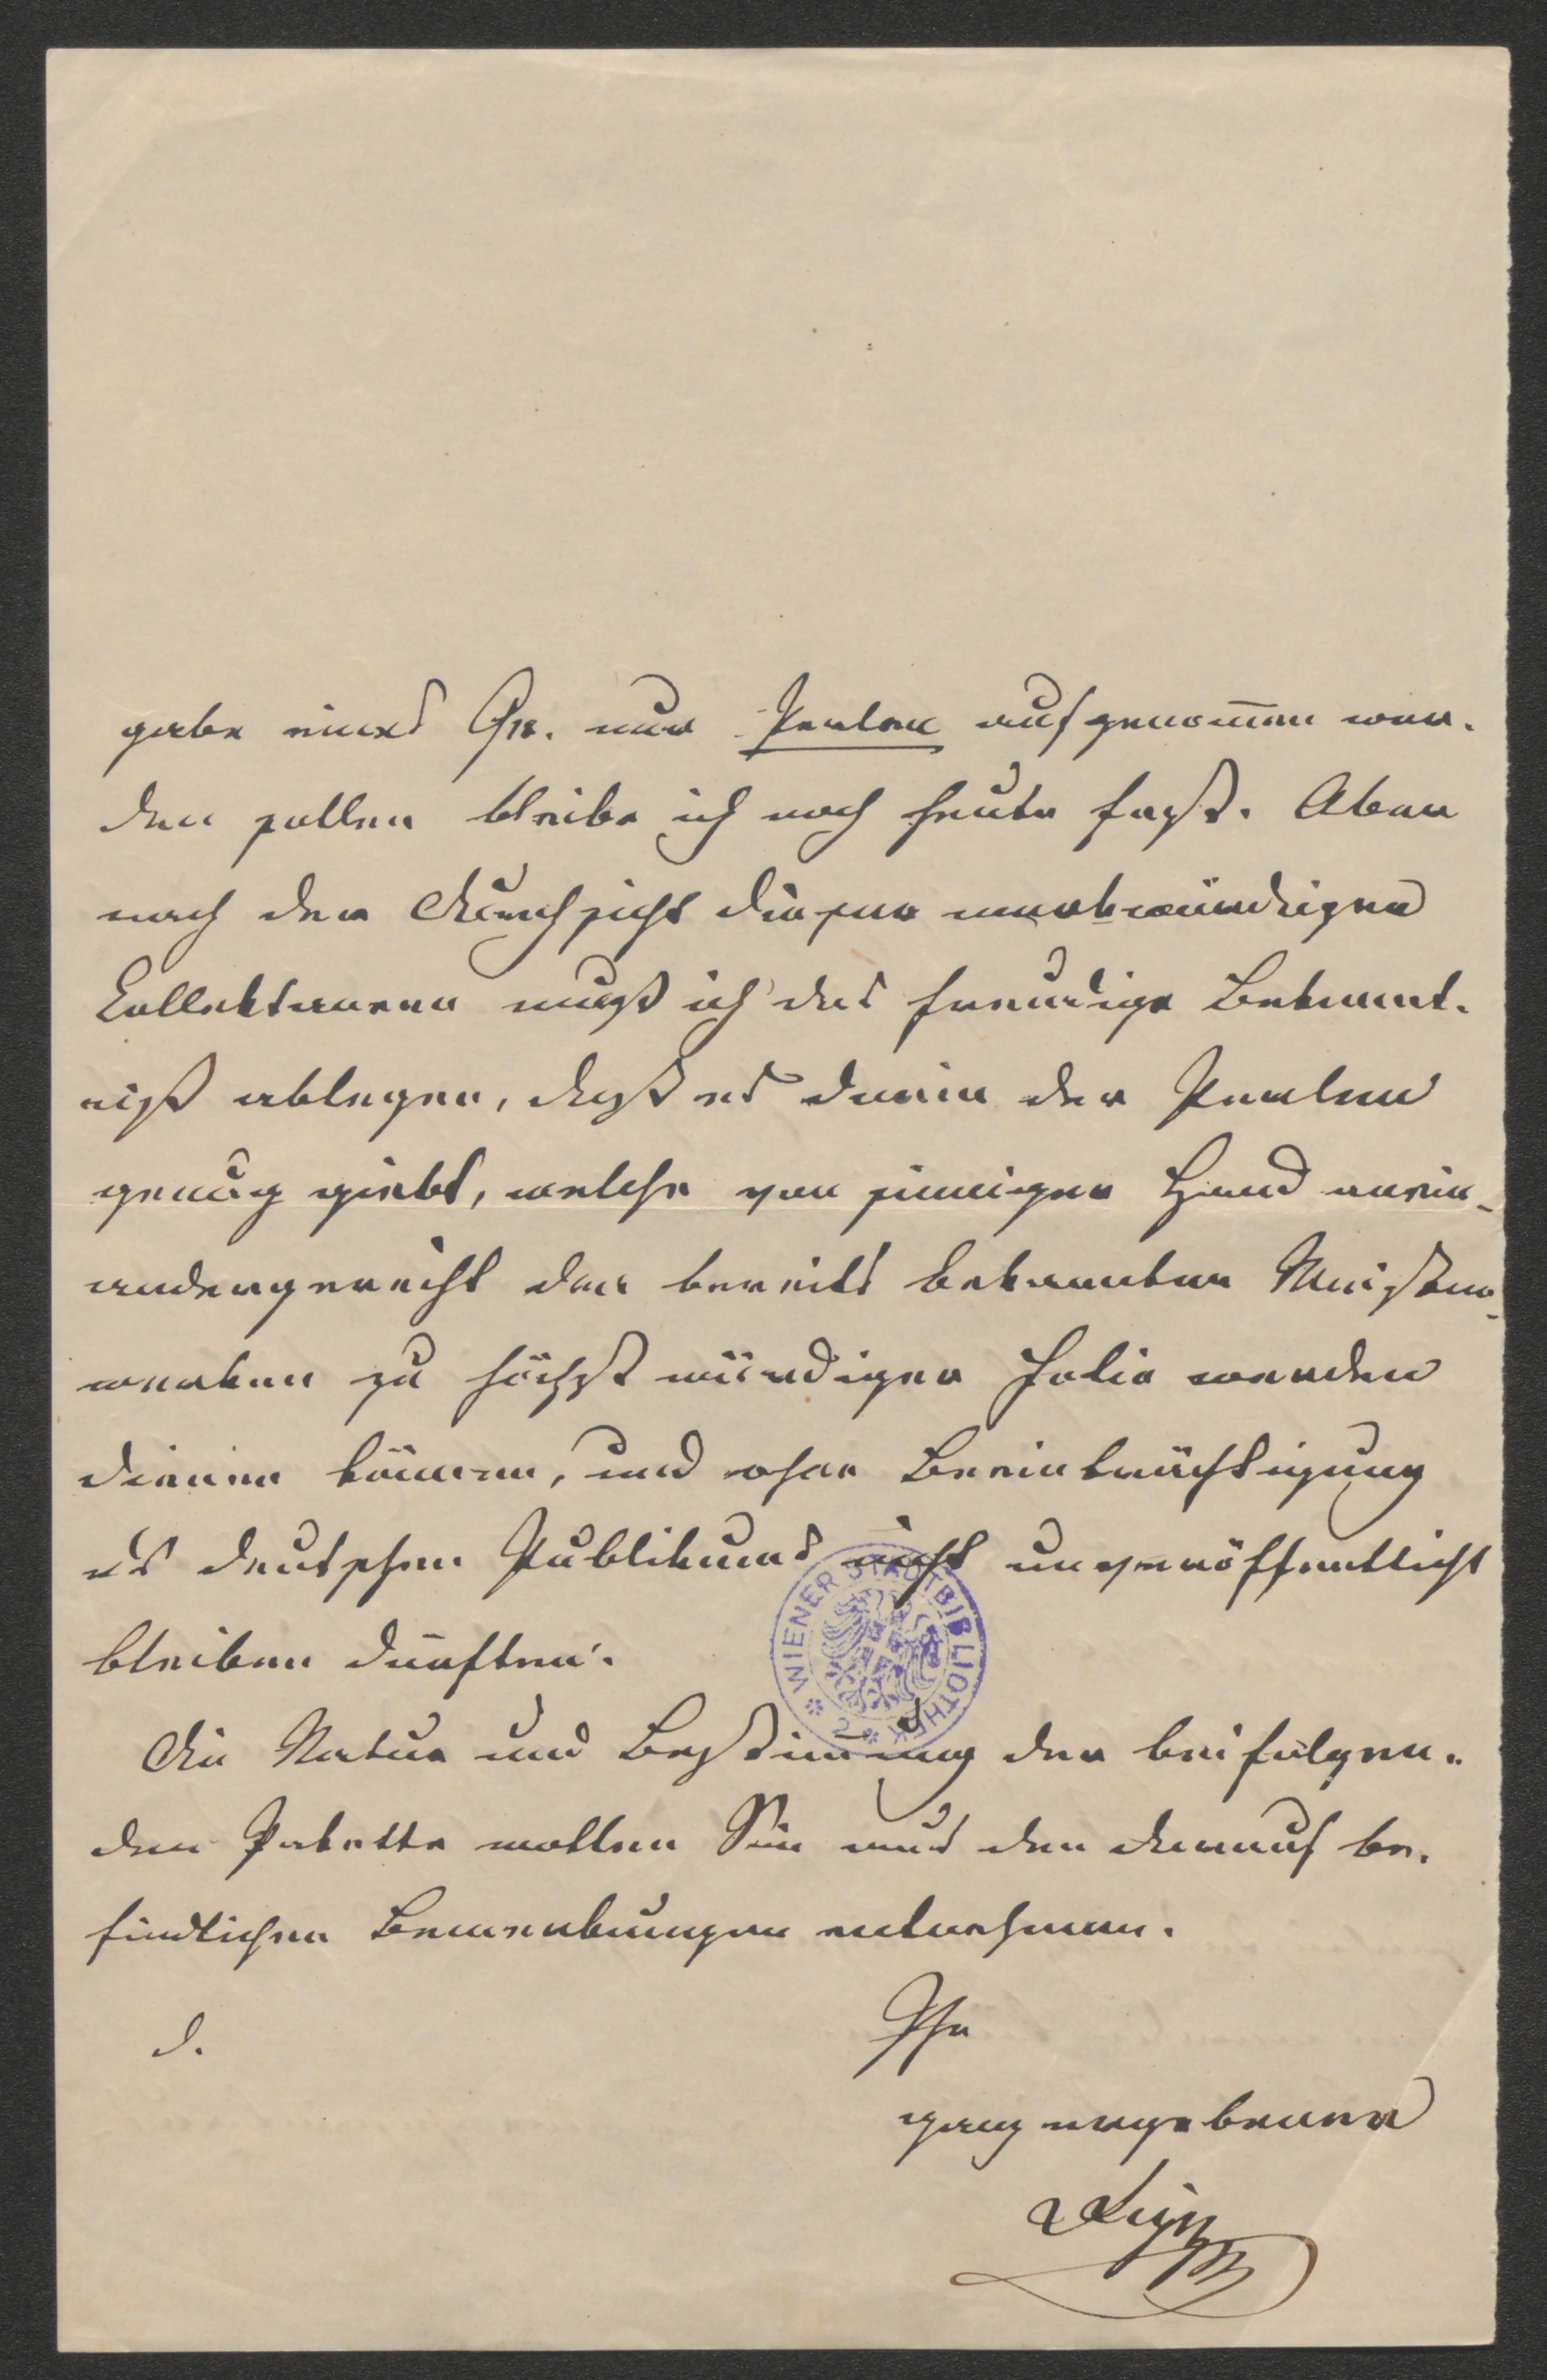 gabe eines Gr. nur Perlen aufgenom̅en wer-
den sollen bleibe ich noch heute fest. Aber
nach der Durchsicht dieser merkwürdigen
Collektaneen muß ich das freudige Bekennt-
niß ablegen, daß es darin der Perlen
genug giebt, welche von sinniger Hand anein-
andergereiht den bereits bekannten Meister-
werken zu höchst würdiger Folie werden
dienen können, und ohne Beeinträchtigung
es deutschen Publikums nicht unveröffentlicht
bleiben dürften.
Die Natur und Bestimmung der beifolgen-
den Pakette wollen Sie aus den darauf be-
findlichen Bemerkungen entnehmen.
d. Ihr
ganz ergebener
WIENER STADTBIBLIOTHEK